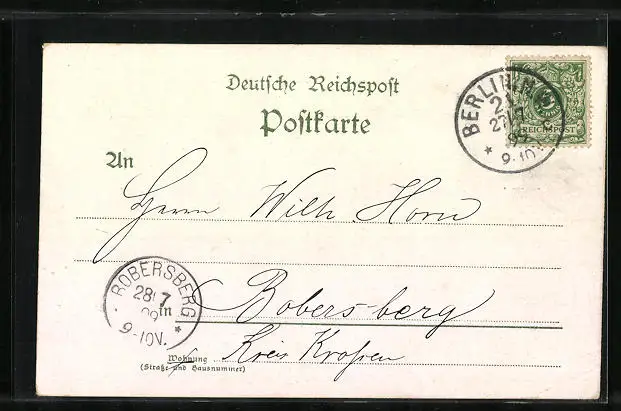 Deutsche Reichspost
Postkarte
BERLIN
27/7
9-10V.
REICHSPOST
An
Herrn Wilh. Horn
ROBERSBERG
28/7
9-10V.
in
Bobersberg
Kreis Krossen
Wohnung
(Straße und Hausnummer)